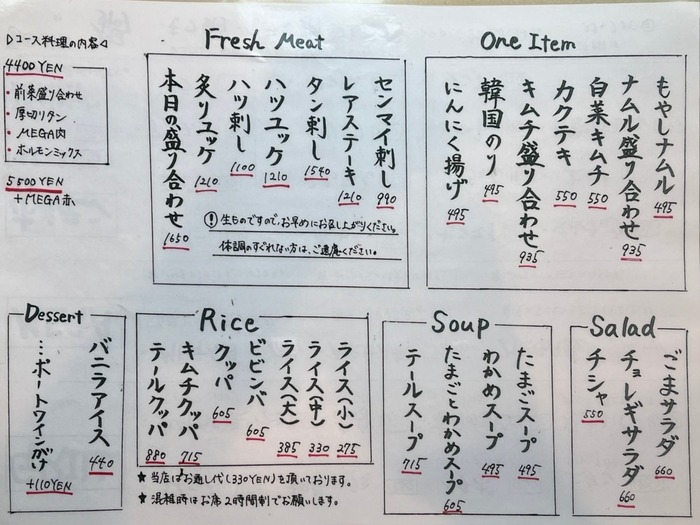 ▷コース料理の内容◁
4400YEN
・前菜盛り合わせ
・厚切りタン
・MEGA肉
・ホルモンミックス
5500YEN
+MEGA赤
Fresh Meat
センマイ刺し 990
レアステーキ 1210
タン刺し 1540
ハツユッケ 1210
ハツ刺し 1100
炙りユッケ 1210
本日の盛り合わせ 1650
! 生ものですので、お早めにお召し上がりください。
体調のすぐれない方は、ご遠慮ください。
One Item
もやしナムル 495
ナムル盛り合わせ 935
白菜キムチ 550
カクテキ 550
キムチ盛り合わせ 935
韓国のり 495
にんにく揚げ 495
Dessert
バニラアイス 440
…ポートワインがけ +110YEN
Rice
ライス(小) 275
ライス(中) 330
ライス(大) 385
ビビンバ 605
クッパ 605
キムチクッパ 715
テールクッパ 880
★当店はお通し代(330YEN)を頂いております。
★混雑時はお席2時間制でお願いします。
Soup
たまごスープ 495
わかめスープ 495
たまごとわかめスープ 605
テールスープ 715
Salad
ごまサラダ 660
チョレギサラダ 660
チシャ 550